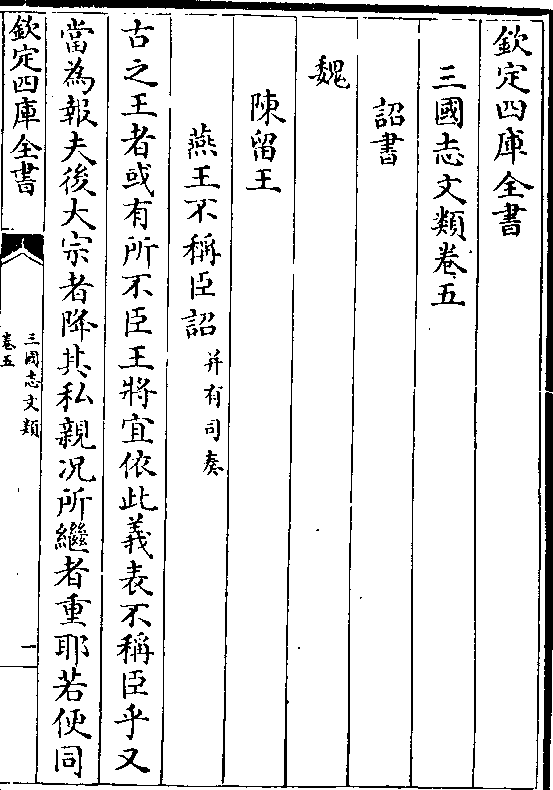 欽定四庫全書
三國志文類卷五
詔書
魏
陳留王
燕王不稱臣詔并有司奏
古之王者或有所不臣王將宜依此義表不稱臣乎又
當為報夫後大宗者降其私親况所繼者重耶若便同
欽定四庫全書
三國志文類
卷五
一